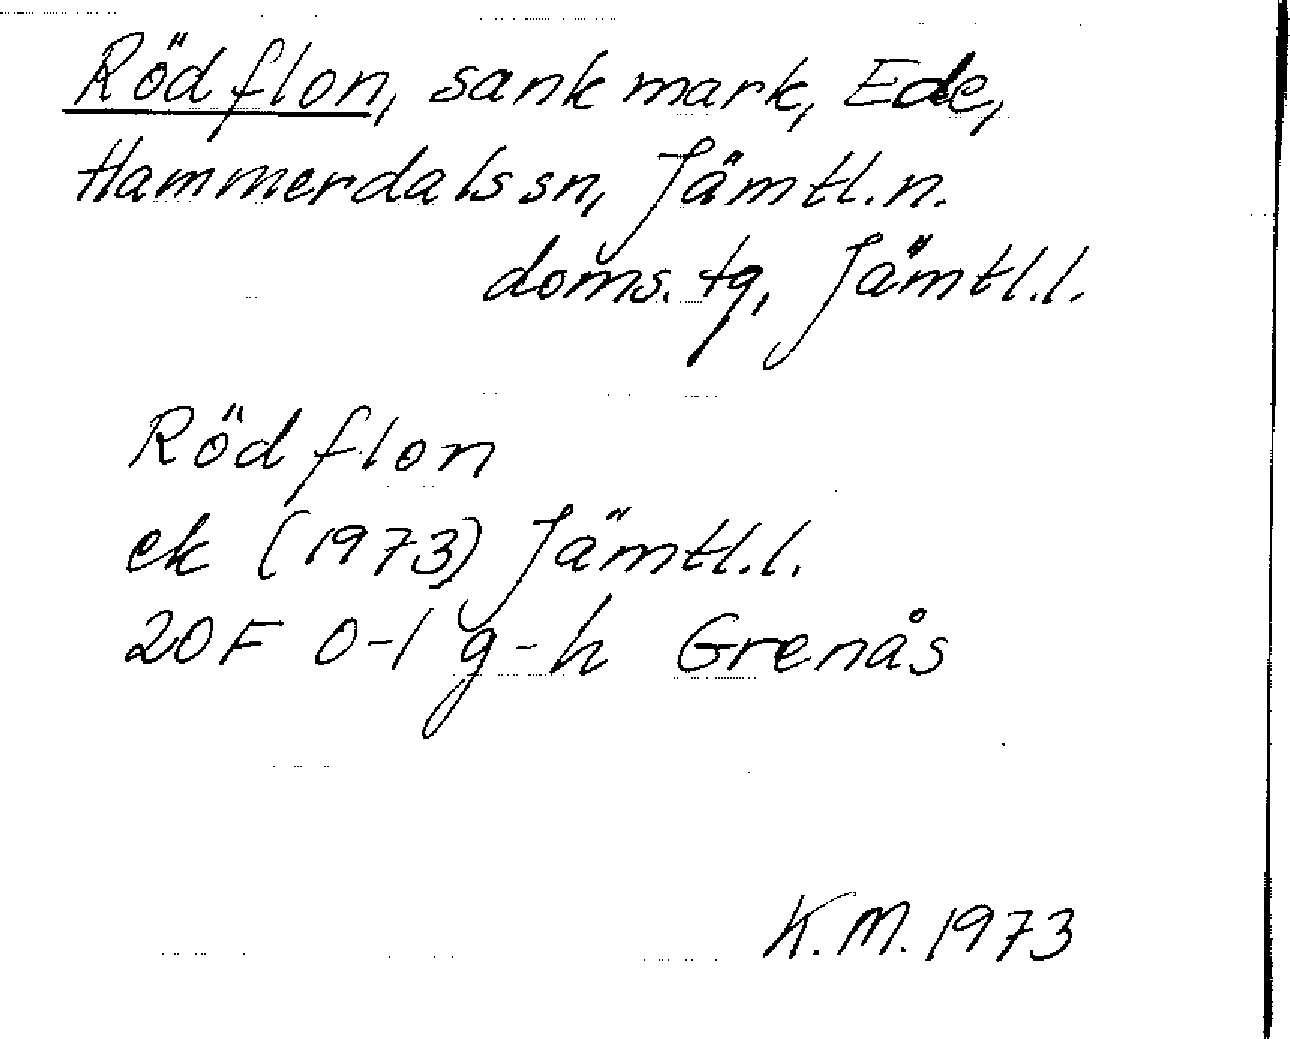 Rödflon, sank mark, Ede,
Hammerdals sn, Jämtl.n.
doms. tg, Jämtl.l.
Rödflon
ek (1973) Jämtl.l.
20F 0-1 g-h Grenås
K.M. 1973